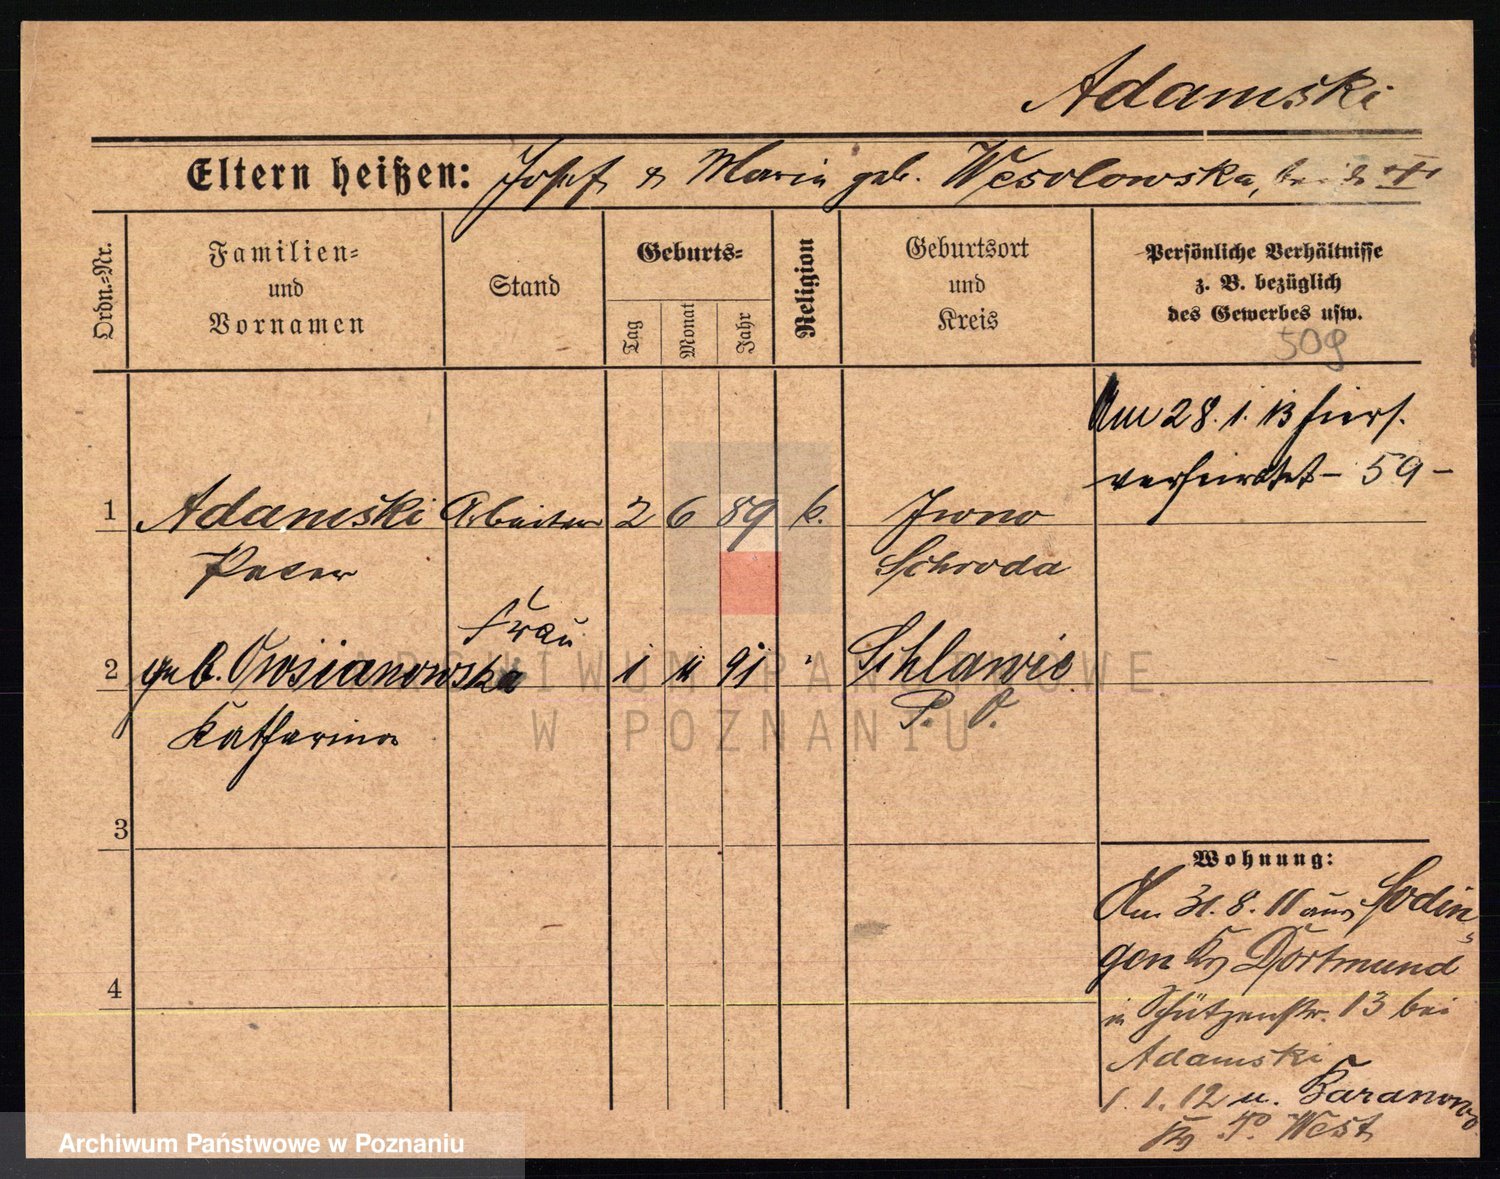 Adamski
Eltern heißen: Josef & Maria geb. Wesolowska, beide
Ordn.-Nr.
Familien- und Vornamen
Stand
Geburts-
Tag
Monat
Jahr
Religion
Geburtsort und Kreis
Persönliche Verhältnisse
z. B. bezüglich
des Gewerbes usw.
509
Am 28.1.13 hiers.
verheiratet - 59 -
1 Adamski Arbeiter 2 6 89 k. Iwno
Peter Schroda
Frau
2 geb. Owsianowska 1 11 91 " Schlawie
Katharina P. O.
3
4
Wohnung:
Am 31.8.11 aus Sodin-
gen Kr Dortmund
in Schützenstr. 13 bei
Adamski
1.1.12 n. Baranowo
Kr. Po. West
ARCHIWUM PAŃSTWOWE
W POZNANIU
Archiwum Państwowe w Poznaniu